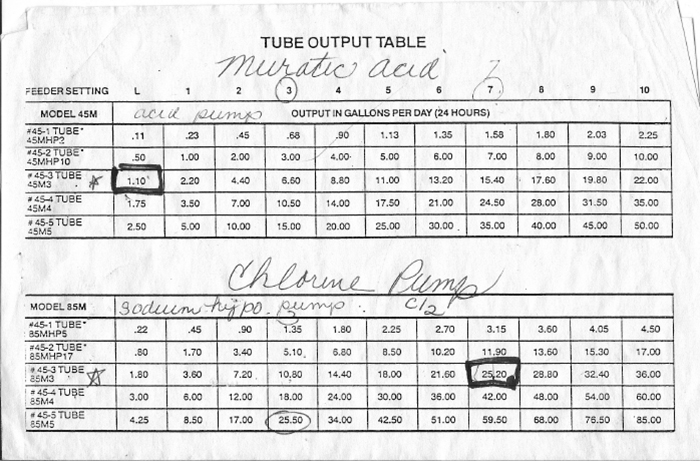 TUBE OUTPUT TABLE
Muratic acid
7
FEEDER SETTING L 1 2 3 4 5 6 7 8 9 10
MODEL 45M acid pump OUTPUT IN GALLONS PER DAY (24 HOURS)
#45-1 TUBE* .11 .23 .45 .68 .90 1.13 1.35 1.58 1.80 2.03 2.25
45MHP2
#45-2 TUBE* .50 1.00 2.00 3.00 4.00 5.00 6.00 7.00 8.00 9.00 10.00
45MHP10
#45-3 TUBE 1.10 2.20 4.40 6.60 8.80 11.00 13.20 15.40 17.60 19.80 22.00
45M3
#45-4 TUBE 1.75 3.50 7.00 10.50 14.00 17.50 21.00 24.50 28.00 31.50 35.00
45M4
#45-5 TUBE 2.50 5.00 10.00 15.00 20.00 25.00 30.00 35.00 40.00 45.00 50.00
45M5
Chlorine Pump
MODEL 85M sodium hypo. pump. Cl2
#45-1 TUBE* .22 .45 .90 1.35 1.80 2.25 2.70 3.15 3.60 4.05 4.50
85MHP5
#45-2 TUBE* .80 1.70 3.40 5.10 6.80 8.50 10.20 11.90 13.60 15.30 17.00
85MHP17
#45-3 TUBE 1.80 3.60 7.20 10.80 14.40 18.00 21.60 25.20 28.80 32.40 36.00
85M3
#45-4 TUBE 3.00 6.00 12.00 18.00 24.00 30.00 36.00 42.00 48.00 54.00 60.00
85M4
#45-5 TUBE 4.25 8.50 17.00 25.50 34.00 42.50 51.00 59.50 68.00 76.50 85.00
85M5